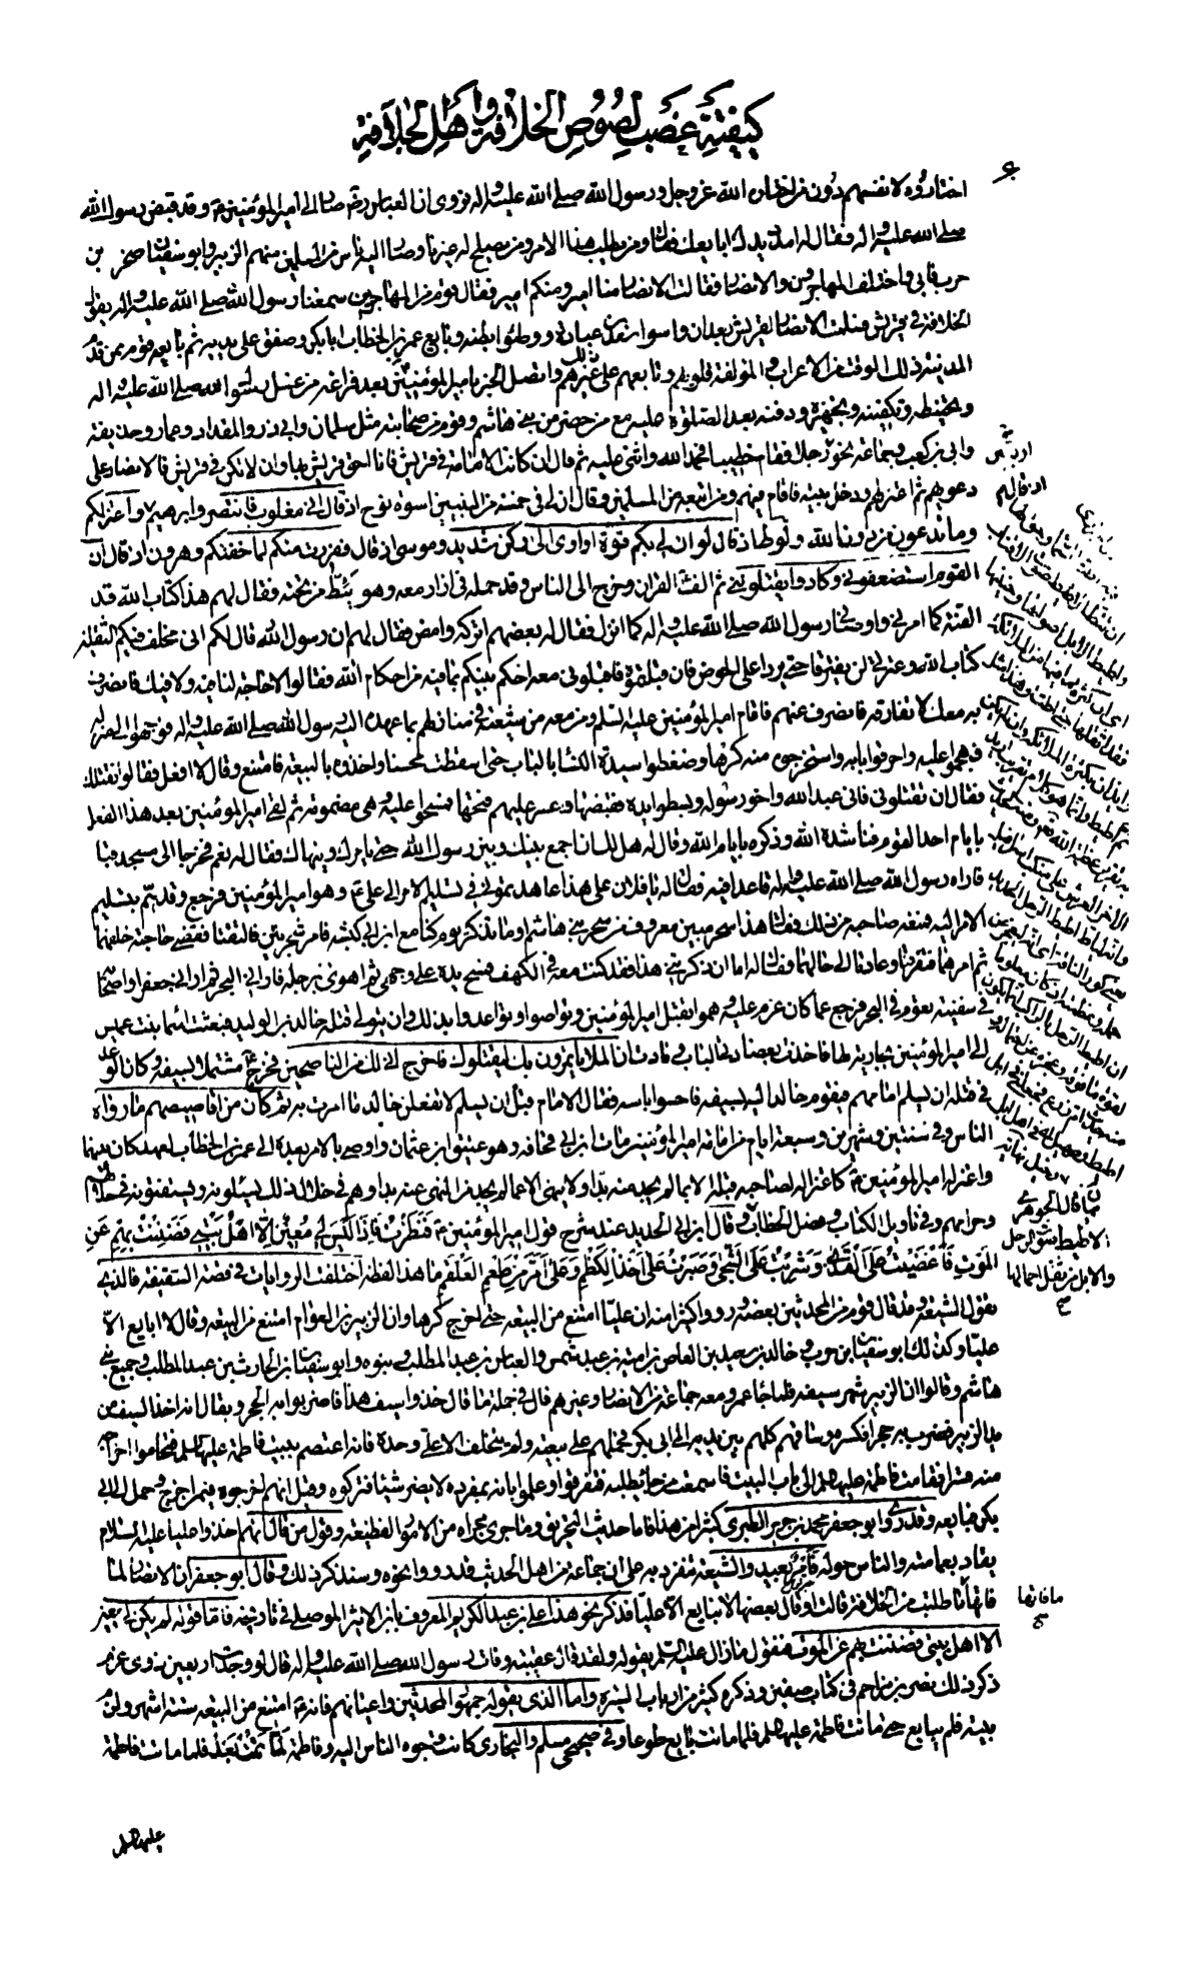 كيفية غصب لصوص الخلافة وأهل الجلافة
اختاروه لانفسهم دون من اختاره الله عز وجل ورسول الله صلى الله عليه واله فروى ان العباس رض صار الى امير المؤمنين ع وقد قبض رسول الله
صلى الله عليه واله فقال له امدد يدك ابايعك فقال ومن يطلب هذا الامر ومن يصلح له غيرنا وصار اليه ناس من المسلمين منهم الزبير وابو سفيان صخر بن
حرب فابى واختلف المهاجرون والانصار فقالت الانصار منا امير ومنكم امير فقال قوم من المهاجرين سمعنا رسول الله صلى الله عليه واله يقول
الخلافة في قريش فسلمت الانصار لقريش بعد ان داسوا سعد بن عبادة ووطئوا بطنه وبايع عمر بن الخطاب ابا بكر وصفق على يديه ثم بايعه قوم ممن قدم
المدينة ذلك الوقت من الاعراب والمؤلفة قلوبهم وتابعهم على ذلك غيرهم واتصل الخبر بامير المؤمنين بعد فراغه من غسل رسول الله صلى الله عليه واله
وتحنيطه وتكفينه وتجهيزه ودفنه بعد الصلوة عليه مع من حضر من بني هاشم وقوم من صحابته مثل سلمان وابي ذر والمقداد وعمار وحذيفة
وابي بن كعب وجماعة نحو اربعين رجلا فقام خطيبا فحمد الله واثنى عليه ثم قال ان كانت الامامة في قريش فانا احق قريش بها وان لا تكن في قريش فالانصار على
دعويهم ثم اعتزلهم ودخل بيته فاقام فيه ومن اتبعه من المسلمين وقال ان لي في خمسة من النبيين اسوة نوح اذ قال اني مغلوب فانتصر وابرهيم اذ قال واعتزلكم
وما تدعون من دون الله ولوط اذ قال لو ان لي بكم قوة او اوي الى ركن شديد وموسى اذ قال ففررت منكم لما خفتكم وهرون اذ قال ان
القوم استضعفوني وكادوا يقتلونني ثم الف القران وخرج الى الناس وقد حمله في ازار معه وهو يئط من تحته فقال لهم هذا كتاب الله قد
الفته كما امرني واوصاني رسول الله صلى الله عليه واله كما انزل فقال له بعضهم اتركه وامض فقال لهم ان رسول الله قال لكم اني مخلف فيكم الثقلين
كتاب الله وعترتي لن يفترقا حتى يردا على الحوض فان قبلتموه فاقبلوني معه احكم بينكم بما فيه من احكام الله فقالوا لا حاجة لنا فيه ولا فيك فانصرف
به معك لا تفارقه فانصرف عنهم فاقام امير المؤمنين عليه السلم ومن معه من شيعته في منازلهم بما عهده اليه رسول الله صلى الله عليه واله فوجهوا الى منزله
فهجموا عليه واحرقوا بابه واستخرجوه منه كرها وضغطوا سيدة النساء بالباب حتى اسقطت محسنا واخذوه بالبيعة فامتنع وقال لا افعل فقالوا نقتلك
فقال ان تقتلوني فاني عبد الله واخو رسوله وبسطوا يده فقبضها وعسر عليهم فتحها فمسحوا عليه وهي مضمومة ثم لقي امير المؤمنين بعد هذا الفعل
بايام احد القوم فناشده الله وذكره بايام الله وقال له هل لك ان اجمع بينك وبين رسول الله حتى يامرك وينهاك فقال له نعم فخرجا الى مسجد قبا
فاراه رسول الله صلى الله عليه واله قاعدا فيه فقال له يا فلان على هذا عاهدتموني في تسليم الامر الى علي ع وهو امير المؤمنين فرجع وقد هم بتسليم
الامر اليه فمنعه صاحبه من ذلك فقال هذا سحر مبين معروف من سحر بني هاشم اوما تذكر يوم كنا مع ابن ابي كبشة فامر شجرتين فالتقتا فقضى حاجته خلفهما
ثم امرهما فتفرقتا وعادتا الى حالهما فقال له اما ان ذكرتني هذا فقد كنت معه في الكهف فمسح يده على وجهي ثم اهوى برجله فاراني البحر ثم اراني جعفرا واصحابه
في سفينة تعوم في البحر فرجع عما كان عزم عليه وهموا بقتل امير المؤمنين وتواصوا وتواعدوا بذلك وان يتولى قتله خالد بن الوليد فبعثت اسماء بنت عميس
الى امير المؤمنين بجارية لها فاخذت بعضادتي الباب ونادت ان الملا ياتمرون بك ليقتلوك فاخرج اني لك من الناصحين فخرج ع مشتملا بسيفه وكان الوعد
في قتله ان يسلم امامهم فيقوم خالد اليه بسيفه فاحسوا باسه فقال الامام قبل ان يسلم لا تفعلن خالد ما امرت به ثم كان من اقاصيصهم ما رواه
الناس وفي سنتين وشهرين وسبعة ايام من امامة امير المؤمنين مات ابن ابي قحافة وهو عتيق ابن عثمان واوصى بالامر بعده الى عمر بن الخطاب لعهد كان بينهما
واعتزله امير المؤمنين ع كاعتزاله لصاحبه قبله لا يامر الا بما لم يجد منه بدا ولا ينهى الا عما لم يجد من النهي عنه بدا وهم في خلال ذلك يسئلونه ويستفتونه في حلالهم
وحرامهم وفي تاويل الكتاب وفصل الخطاب وقال ابن ابي الحديد عند شرح قول امير المؤمنين ع فنظرت فاذا ليس لي معين الا اهل بيتي فضننت بهم عن
الموت فاغضيت على القذى وشربت على الشجى وصبرت على اخذ الكظم وعلى امر من طعم العلقم ما هذا لفظه اختلفت الروايات في قصة السقيفة فالذي
تقوله الشيعة وقد قال قوم من المحدثين بعضه ورووا كثيرا منه ان عليا امتنع من البيعة حتى اخرج كرها وان الزبير بن العوام امتنع من البيعة وقال لا ابايع الا
عليا وكذلك ابو سفيان ابن حرب وخالد بن سعيد بن العاص بن امية بن عبد شمس والعباس بن عبد المطلب وبنوه وابو سفيان ابن الحارث بن عبد المطلب وجميع بني
هاشم وقالوا ان الزبير شهر سيفه فلما جاء عمر ومعه جماعة من الانصار وغيرهم قال في جملة ما قال خذوا سيف هذا فاضربوا به الحجر ويقال انه اخذ السيف من
يد الزبير فضرب به حجرا فكسره وساقهم كلهم بين يديه الى ابي بكر فحملهم على بيعته ولم يتخلف الا علي وحده فانه اعتصم ببيت فاطمة عليها السلم فتحاموا اخراجه
منه قسرا فقامت فاطمة عليها السلم الى باب البيت فاسمعت من جاء يطلبه فتفرقوا وعلموا بانه بمفرده لا يضر شيئا فتركوه وقيل انهم اخرجوه فيمن اخرج وحمل الى ابي
بكر فبايعه وقد روى ابو جعفر محمد بن جرير الطبري كثيرا من هذا فاما حديث التحريق وما جرى مجراه من الامور الفظيعة وقول من قال انهم اخذوا عليا عليه السلام
يقاد بعمامته والناس حوله فامر بعيد والشيعة تنفرد به على ان جماعة من اهل الحديث قد رووا نحوه وسنذكر ذلك وقال ابو جعفر ان الانصار لما
فاتها ما طلبت من الخلافة قالت او قال بعضها لا نبايع الا عليا وذكر نحو هذا علي بن عبد الكريم المعروف بابن الاثير الموصلي في تاريخه فاما قوله لم يكن لي معين
الا اهل بيتي فضننت بهم عن الموت فنقول ما زال عليه السلم يقوله ولقد قال عقيب وفات رسول الله صلى الله عليه واله قال لو وجدت اربعين ذوي عزم
ذكر ذلك نصر بن مزاحم في كتاب صفين وذكره كثير من ارباب السيرة واما الذي يقوله جمهور المحدثين واعيانهم فانه ع امتنع من البيعة ستة اشهر ولزم
بيته فلم يبايع حتى ماتت فاطمة عليها السلم فلما ماتت بايع طوعا وفي صحيحي مسلم والبخاري كانت وجوه الناس اليه وفاطمة لما تمت بعد فلما ماتت فاطمة
عليها السلم
كما قال الجوهري
الاطيط صوت الرحل
والابل من ثقل احمالها
ما فاتها